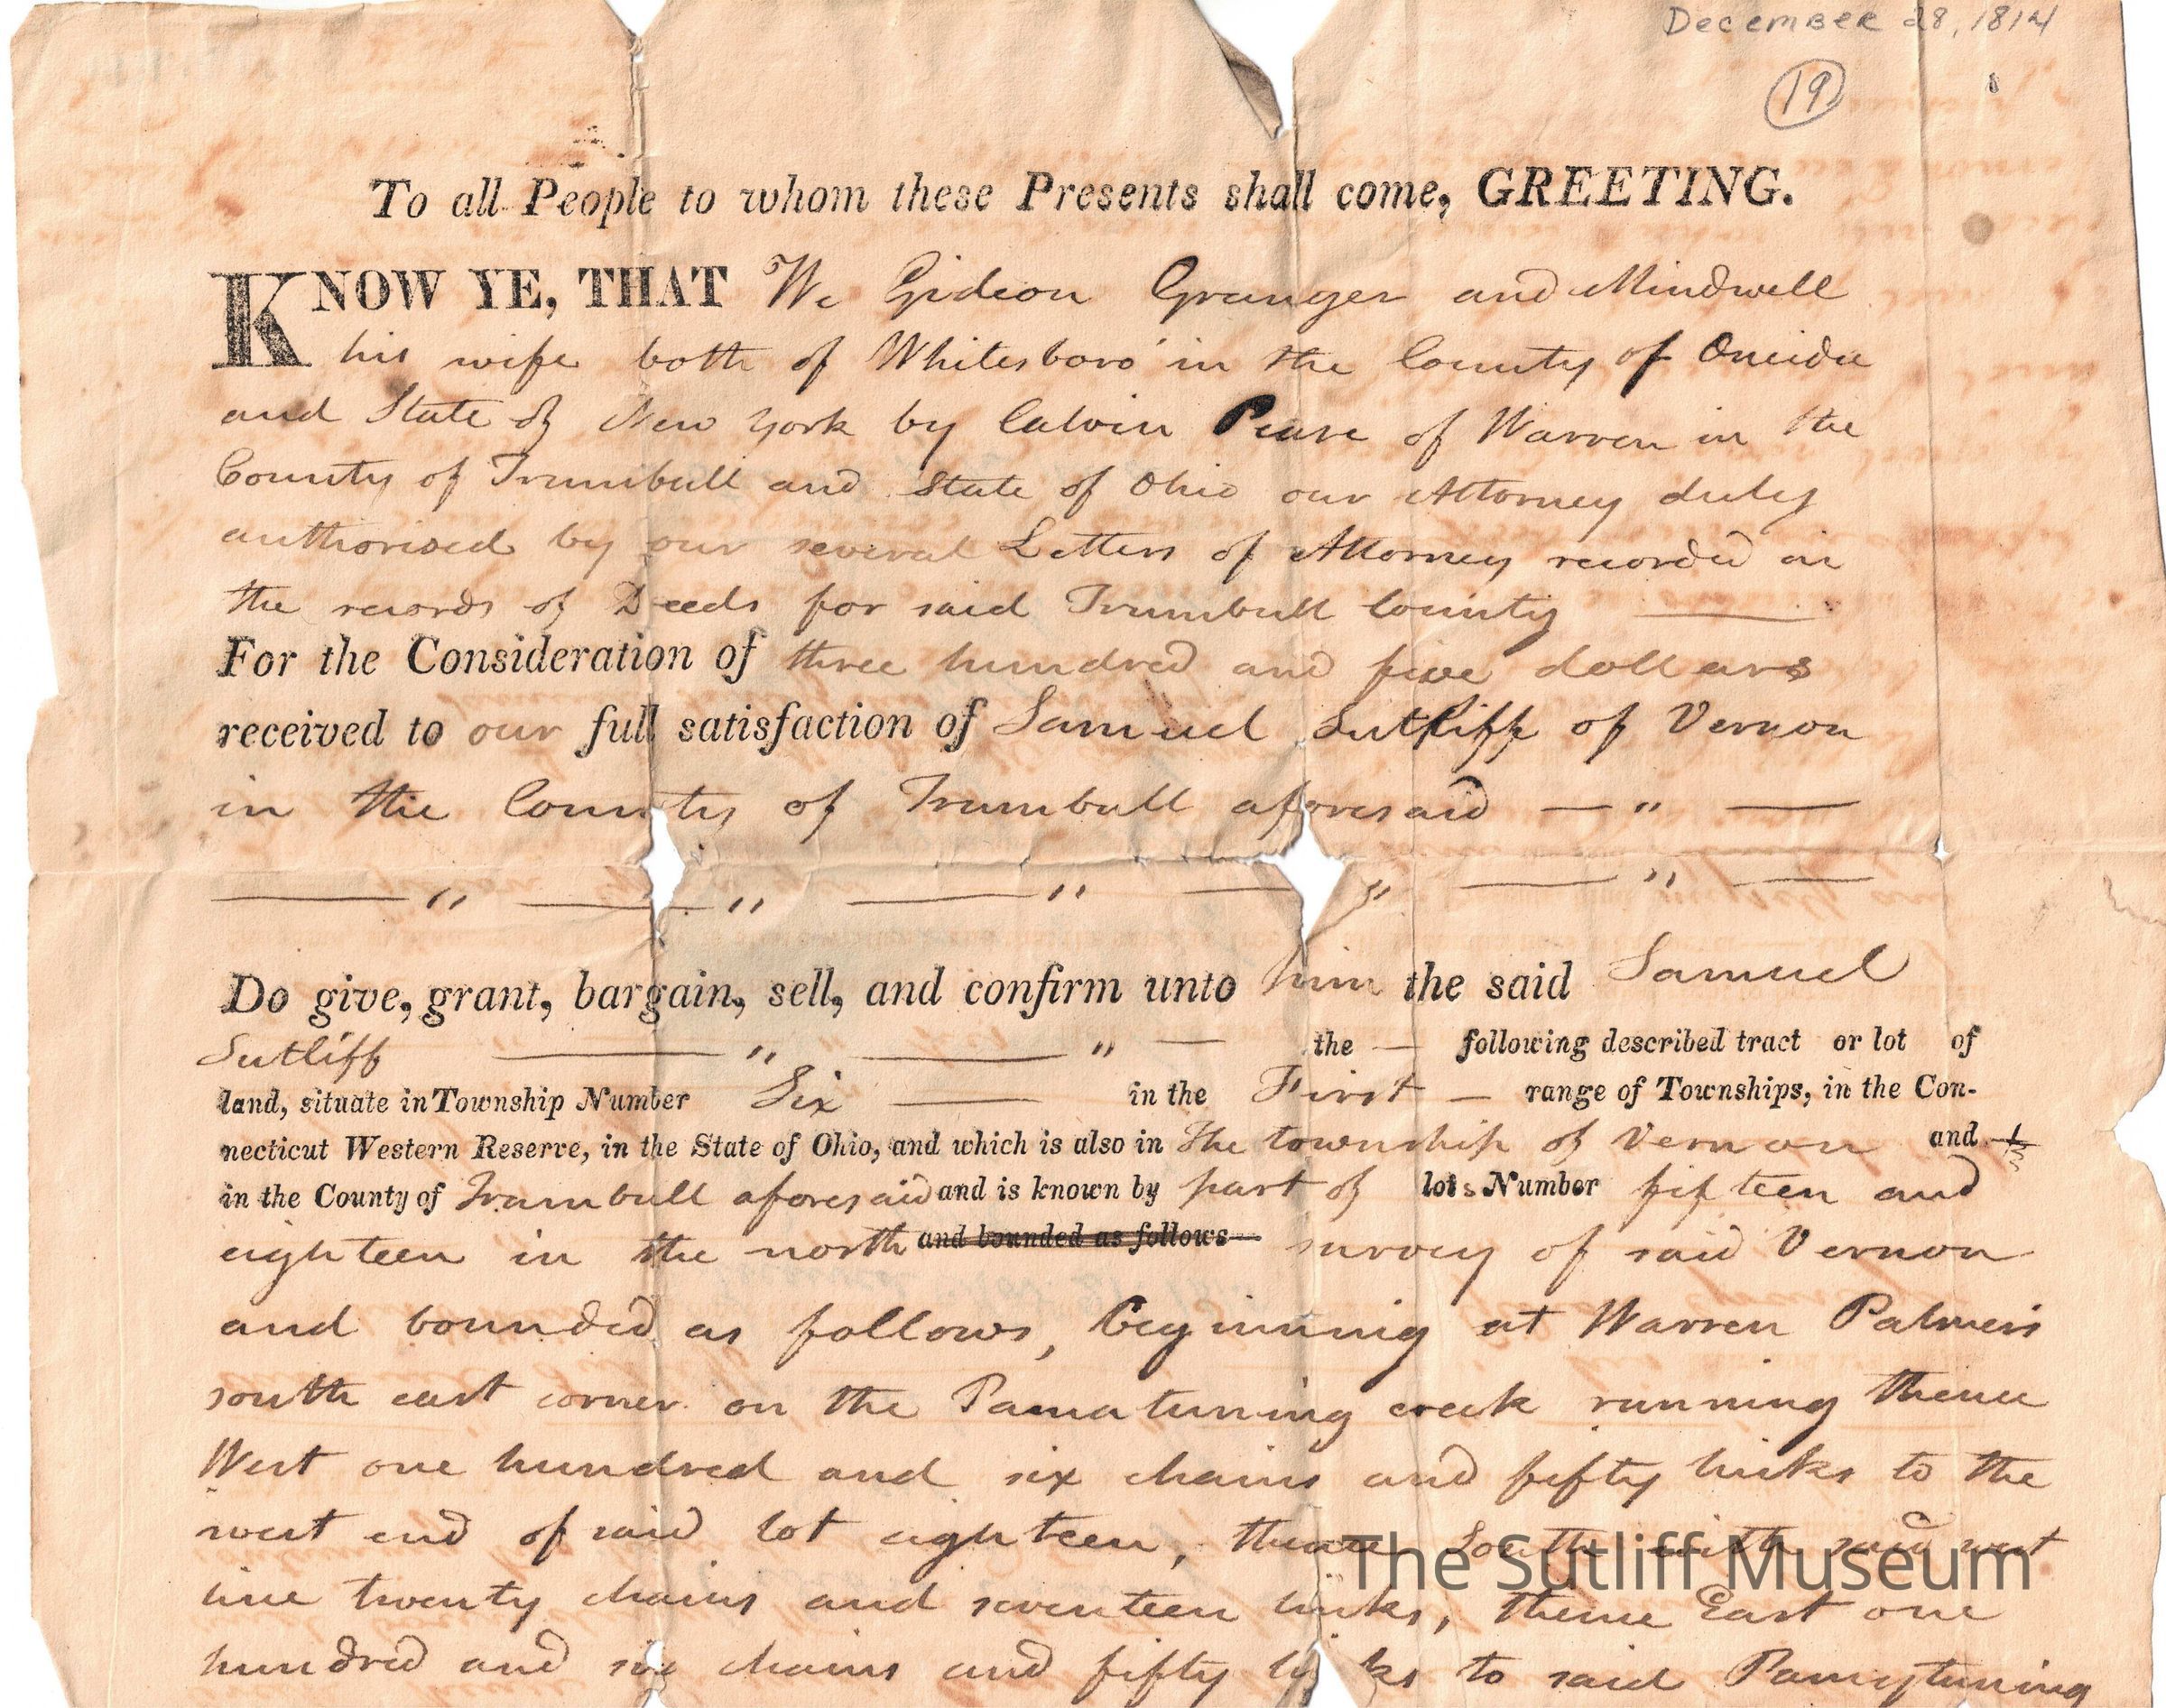 December 28, 1814
19
To all People to whom these Presents shall come, GREETING.
KNOW YE, THAT We Gideon Granger and Mindwell
his wife both of Whitesboro' in the County of Oneida
and State of New York by Calvin Pease of Warren in the
County of Trumbull and State of Ohio our Attorney duly
authorised by our several Letters of Attorney recorded in
the records of Deeds for said Trumbull County —
For the Consideration of three hundred and five dollars
received to our full satisfaction of Samuel Sutliff of Vernon
in the County of Trumbull aforesaid — " —
— " — " — " — " — " —
Do give, grant, bargain, sell, and confirm unto him the said Samuel
Sutliff — " — " — the — following described tract or lot of
land, situate in Township Number Six — in the First — range of Townships, in the Con-
necticut Western Reserve, in the State of Ohio, and which is also in the township of Vernon and
in the County of Trumbull aforesaid and is known by part of lots Number fifteen and
eighteen in the north and bounded as follows survey of said Vernon
and bounded as follows, beginning at Warren Palmers
south east corner on the Pamatuning creek running thence
West one hundred and six chains and fifty links to the
west end of said lot eighteen, thence South with said west
line twenty chains and seventeen links, thence East one
hundred and six chains and fifty links to said Pamytuning
The Sutliff Museum